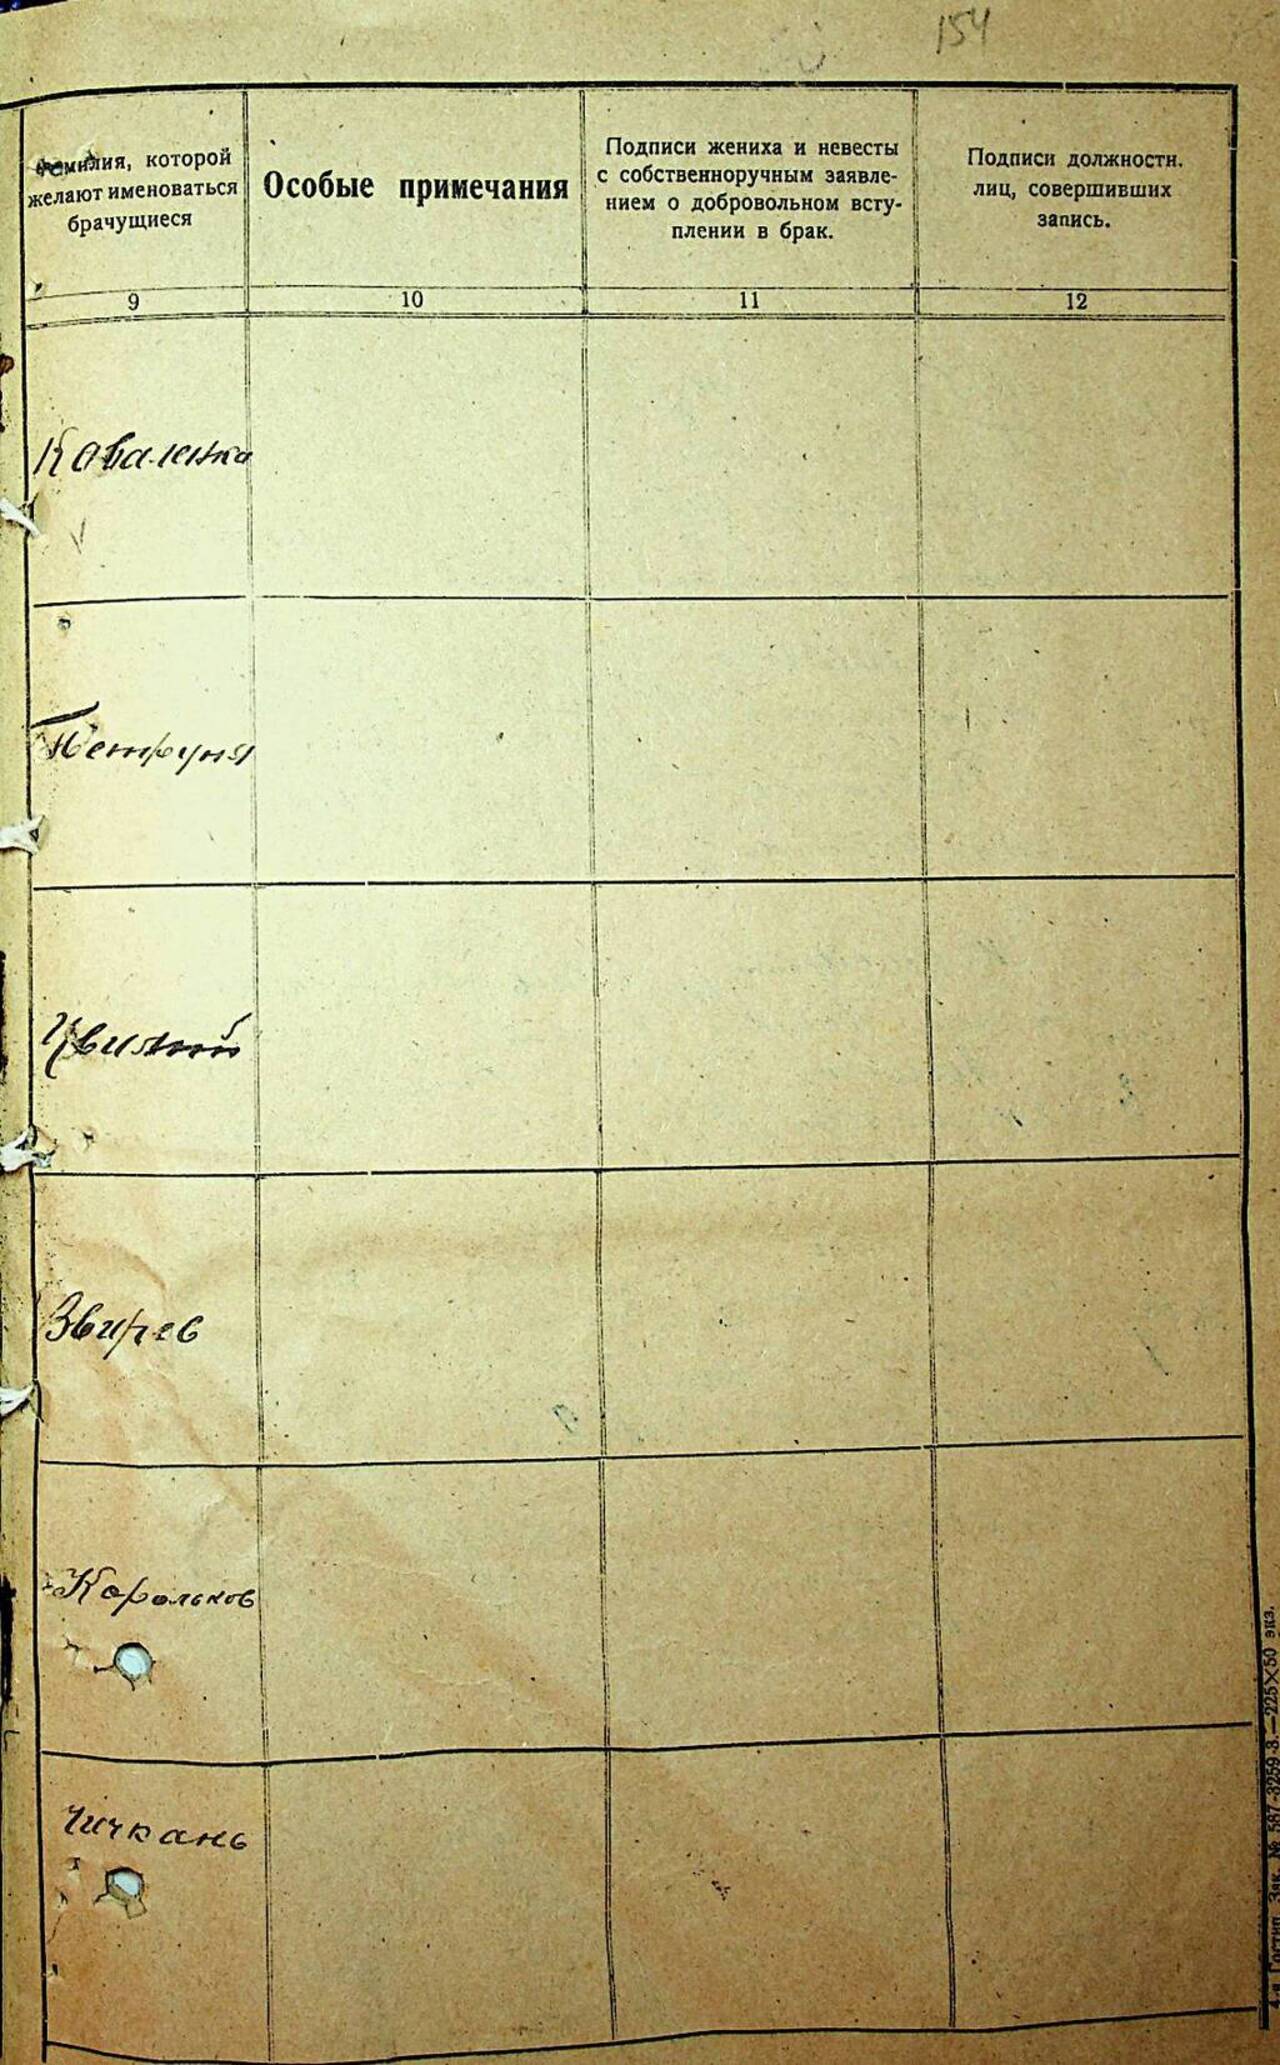 154
Фамилия, которой
желают именоваться
брачущиеся
Особые примечания
Подписи жениха и невесты
с собственноручным заявле-
нием о добровольном всту-
плении в брак.
Подписи должностн.
лиц, совершивших
запись.
9
10
11
12
Коваленко
Петруня
Звирев
Корольков
Чичкань
Гостип. Зак. № 587-3259-з.—225×50 экз.